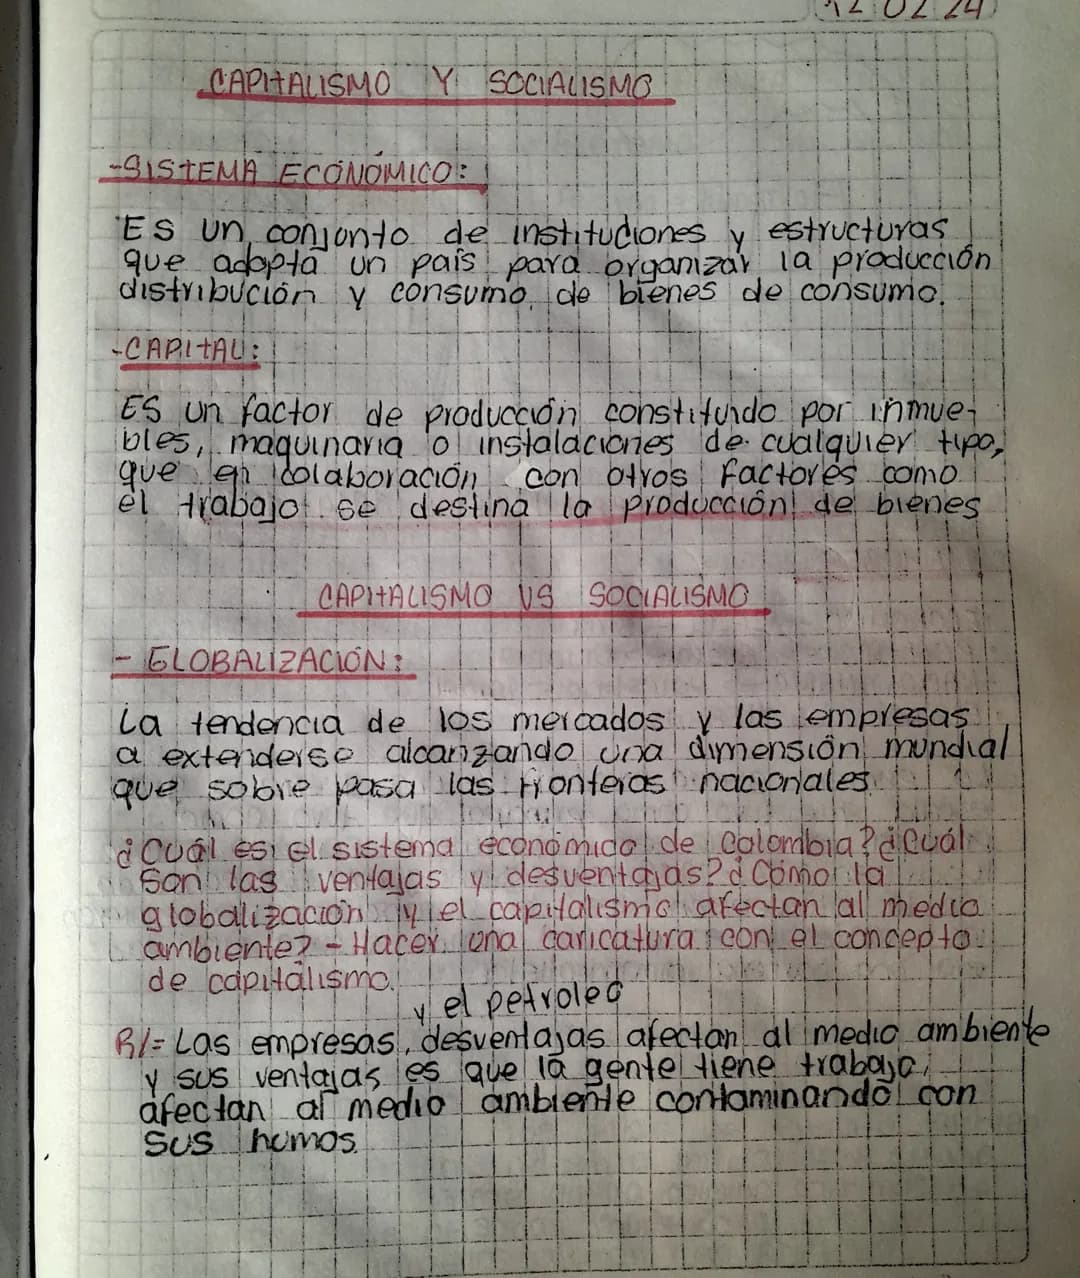 12 02 24
CAPITALISMO Y SOCIALISMO
-SISTEMA ECONÓMICO:
ES un conjunto de instituciones y estructuras
que adopta un país para organizar la producción
distribución y consumo de bienes de consumo.
-CAPITAL:
ES un factor de producción constituido por inmue-
bles, maquinaria o instalaciones de cualquier tipo,
que en colaboración con otros factores como
el trabajo se destina la producción de bienes
CAPITALISMO VS SOCIALISMO
- GLOBALIZACIÓN:
La tendencia de los mercados y las empresas
a extenderse alcanzando una dimensión mundial
que sobre pasa las fronteras nacionales.
¿Cuál es el sistema económico de Colombia? ¿Cuál
son las ventajas y desventajas? ¿Cómo la
globalización y el capitalismo afectan al medio
ambiente? - Hacer una caricatura con el concepto
de capitalismo.
y el petroleo
R/= Las empresas, desventajas afectan al medio ambiente
y sus ventajas es que la gente tiene trabajo,
afectan al medio ambiente contaminando con
sus humos.